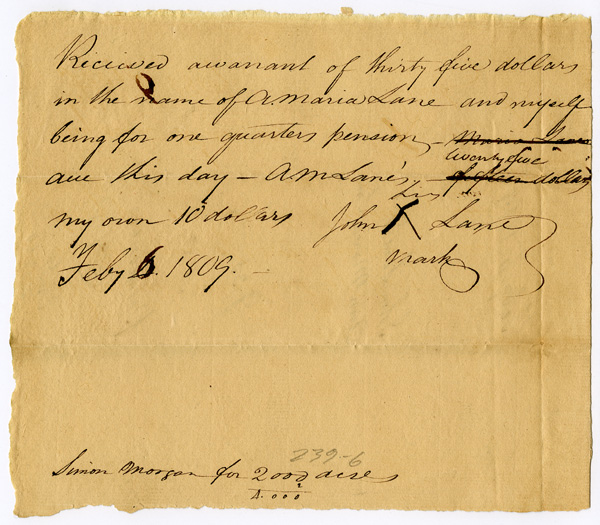 Received a warrant of thirty five dollars
in the name of A Maria Lane and myself
being for one quarters pension — Maria Lane
twenty five
due this day — A M Lane's — fifteen dollars
his
my own 10 dollars John X Lane
mark
Feby 6. 1809. —
239-6
Simon Morgan for 2000 acres